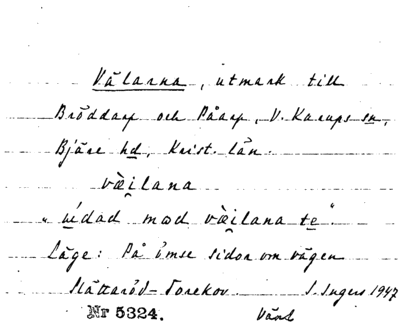 Välarna, utmark till
Bröddarp och Påarp, V. Karups sn,
Bjäre hd, Krist. län.
væ̀i̯lana
" u̇́dad mæd væ̀i̯lana te"
Läge: På ömse sidor om vägen
Slättaröd–Torekov. I. Ingers 1947
Nr 5324.